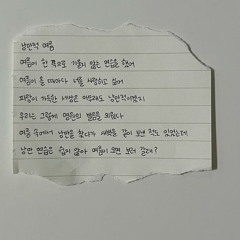 낭만적 여름
여름이 한 쪽으로 기울지 않는 연습을 했어
여름이 올 때마다 너를 사랑하고 싶어
파랑이 가득한 세상은 아무래도 낭만적이겠지
우리는 그렇게 영원의 발음을 외웠다
여름 속에서 낭만을 찾다가 새벽을 같이 보낸 적도 있었는데
낭만 연습은 쉽지 않아 여름이 오면 보러 갈래?